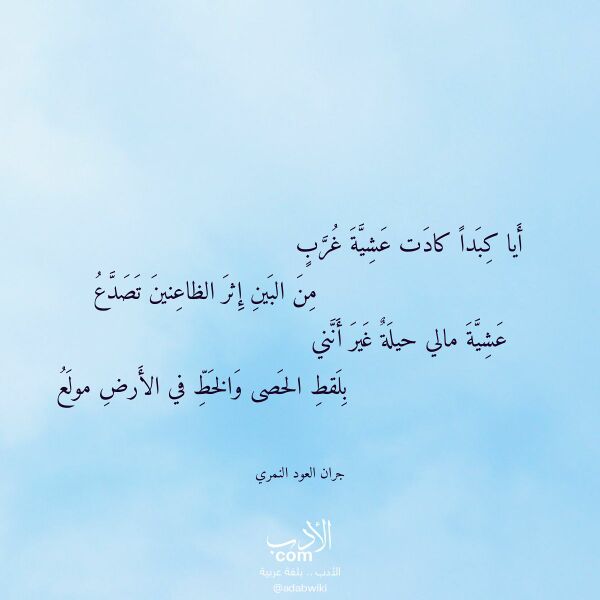 أَيا كِبَداً كادَت عَشِيَّةَ غُرَّبٍ
مِنَ البَينِ إِثرَ الظاعِنينَ تَصَدَّعُ
عَشِيَّةَ مالي حيلَةٌ غَيرَ أَنَّني
بِلَقطِ الحَصى وَالخَطِّ في الأَرضِ مولَعُ
جران العود النمري
الأدب
com
الأدب .. بلغة عربية
@adabwiki